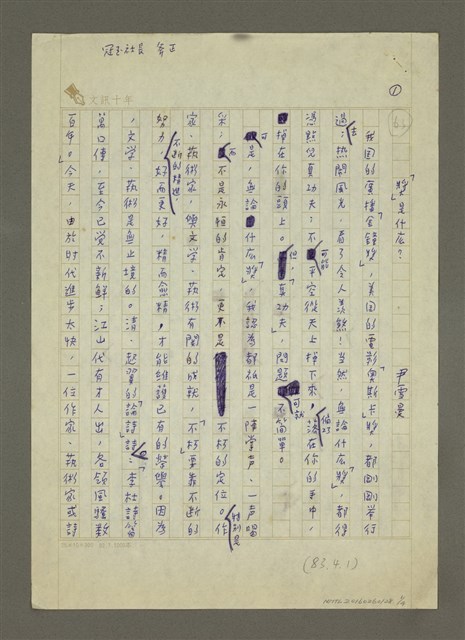 冠玉社長 斧正
文訊十年
①
「獎」是什么? 尹雪曼
我国的「廣播金鐘獎」,美国的電影奧斯卡獎,都剛剛舉行
過去;热鬧風光,看了令人羡煞!当然,無論什么「獎」,都得
憑点兒真功夫;不可能平空從天上掉下來,偏巧落在你的手中,
掉在你的頭上。但「真功夫」,問題可就不簡單。
可是,無論什么「獎」,我認為都祇是一陣掌声、一声喝
采;而不是永恒的肯定,更不是不朽的定位。特別是作
家、执術家,與文学、执術有関的成就,「不朽」要靠不断的
努力、不断的精進,好而更好,精而愈精,才能維護已有的榮譽。因為
,文学、执術是無止境的。清.赵翼的「論詩」詩:「李杜詩篇
萬口傳,至今已覺不新鮮;江山代有才人出,各領風騷數
百年。」今天,由於时代進步太快,一位作家、执術家或詩
(83.4.1)